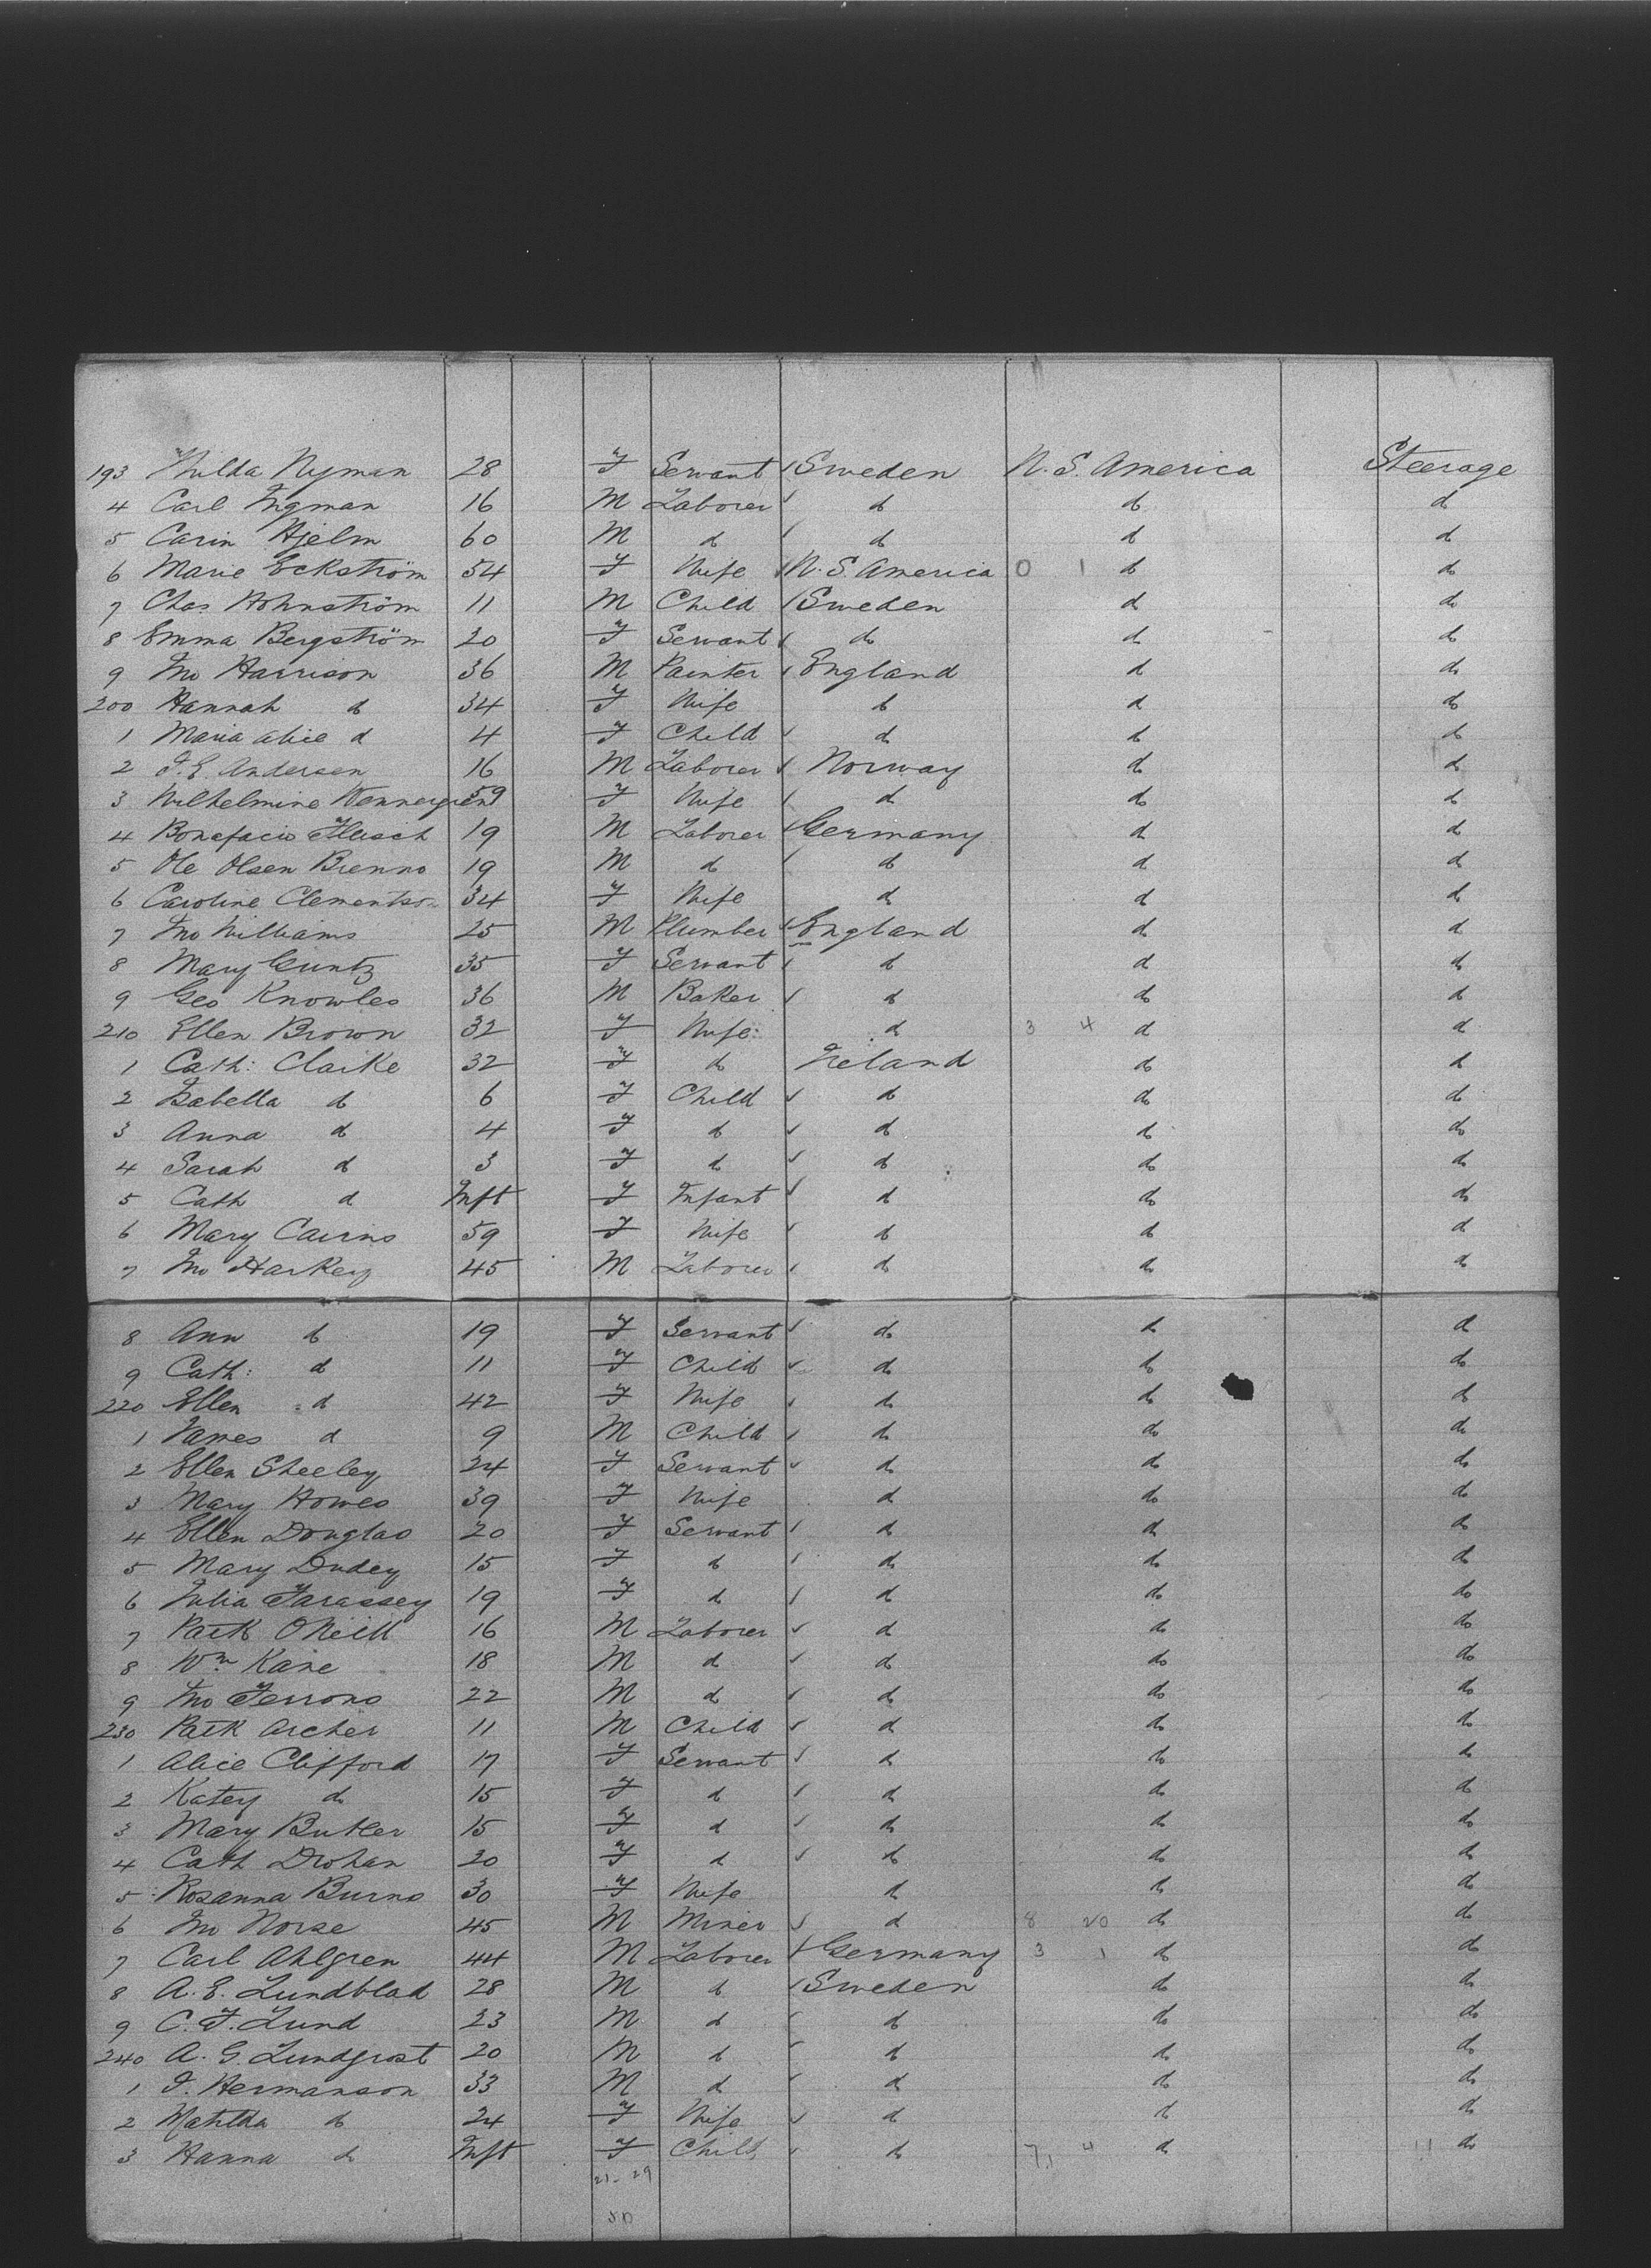 193 Hilda Nyman 28 F Servant Sweden U. S. America Steerage
4 Carl Ingman 16 M Laborer do do do
5 Carin Hjelm 60 M do do do do
6 Marie Eckström 54 F Wife U. S. America 0 1 do do
7 Chas Hohnström 11 M Child Sweden do do
8 Emma Bergström 20 F Servant do do do
9 Jno Harrison 36 M Painter England do do
200 Hannah do 34 F Wife do do do
1 Maria Alice do 4 F Child do do do
2 F. E. Andersen 16 M Laborer Norway do do
3 Wilhelmine Wennergren 59 F Wife do do do
4 Bonefacio 19 M Laborer Germany do do
5 Ole Olsen Brenno 19 M do do do do
6 Caroline Clementson 34 F Wife do do do
7 Jno Williams 25 M Plumber England do do
8 Mary Cuntz 35 F Servant do do do
9 Geo Knowles 36 M Baker do do do
210 Ellen Brown 32 F Wife do 3 4 do do
1 Cath: Clarke 32 F do Ireland do do
2 Isabella do 6 F Child do do do
3 Anna do 4 F do do do do
4 Sarah do 3 F do do do do
5 Cath do Inft F Infant do do do
6 Mary Cairns 59 F Wife do do do
7 Jno Harkey 45 M Laborer do do do
8 Ann do 19 F Servant do do do
9 Cath: do 11 F Child do do do
220 Ellen do 42 F Wife do do do
1 James do 9 M Child do do do
2 Ellen Sheeley 24 F Servant do do do
3 Mary Howes 39 F Wife do do do
4 Ellen Douglas 20 F Servant do do do
5 Mary Dudey 15 F do do do do
6 Julia Farassey 19 F do do do do
7 Patk O'Neill 16 M Laborer do do do
8 Wm Kane 18 M do do do do
9 Jno Ferrons 22 M do do do do
230 Patk Archer 11 M Child do do do
1 Alice Clifford 17 F Servant do do do
2 Katey do 15 F do do do do
3 Mary Butler 15 F do do do do
4 Cath Drohan 20 F do do do do
5 Rosanna Burns 30 F Wife do do do
6 Jno Norse 45 M Miner do 8 20 do do
7 Carl Ahlgren 44 M Laborer Germany 3 1 do do
8 A. E. Lundblad 28 M do Sweden do do
9 C. F. Lund 23 M do do do do
240 A. G. Lundgrost 20 M do do do do
1 F. Hermanson 33 M do do do do
2 Matilda do 24 F Wife do do do
3 Hanna do Inft F Child do 7 4 do 11 do
21 - 29
50